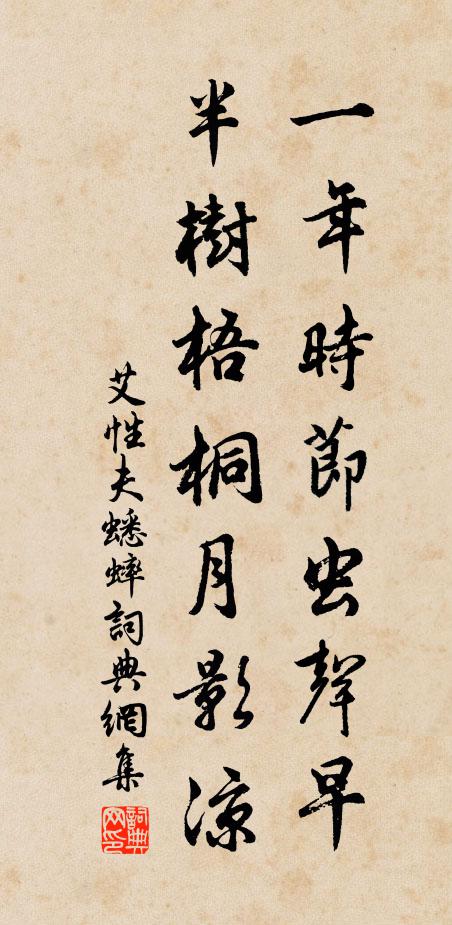 一年時節虫聲早
半樹梧桐月影凉
艾性夫蟋蟀詞典網集
詞典网印